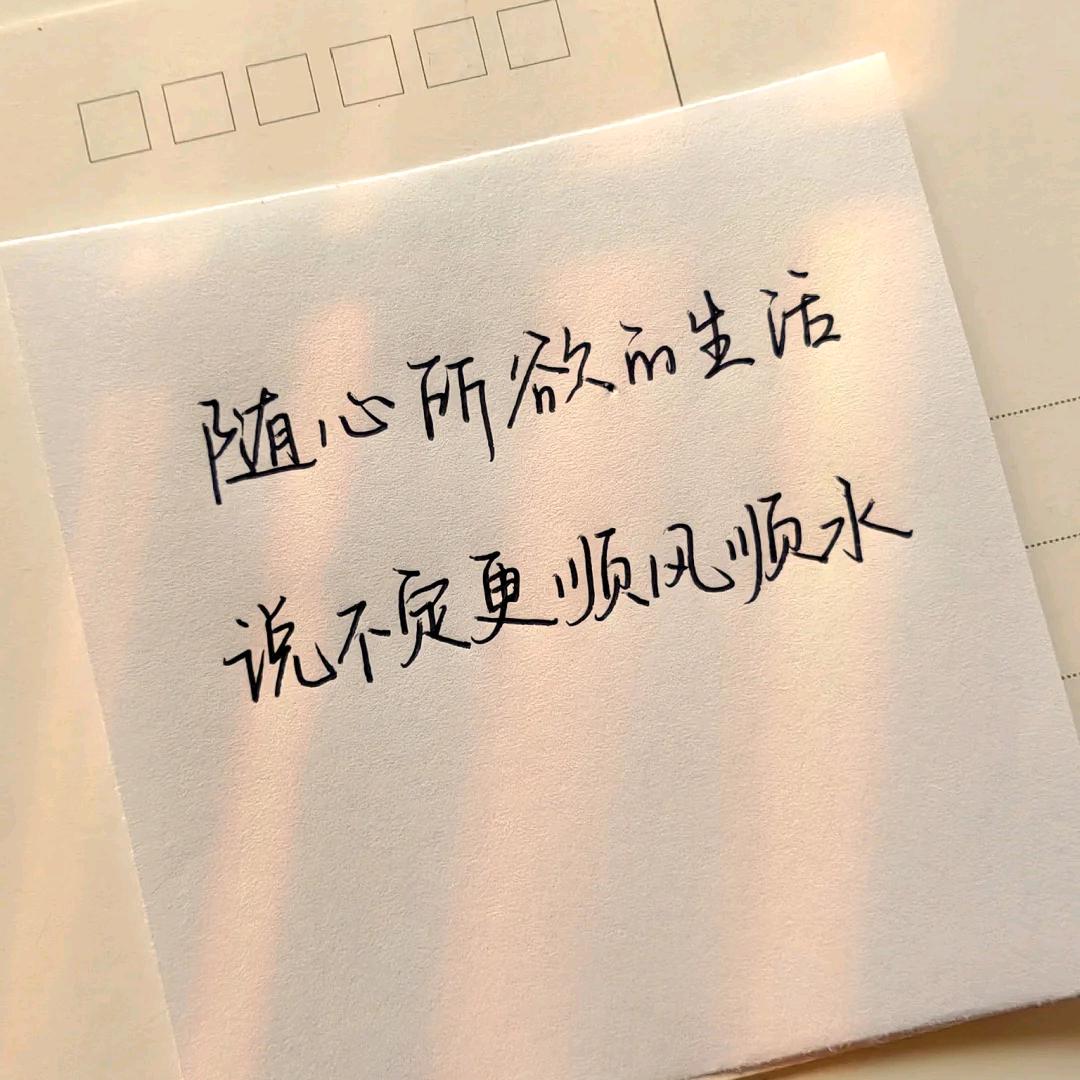 随心所欲的生活
说不定更顺风顺水